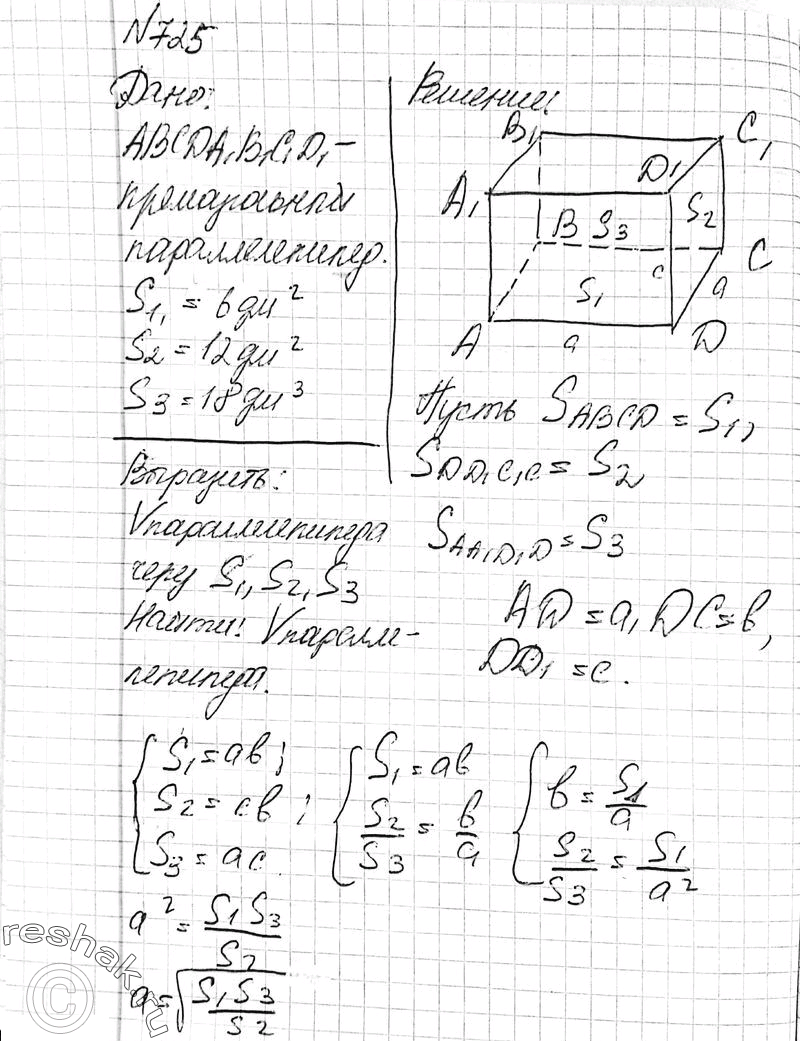 N725
Дано:
ABCDA₁B₁C₁D₁ –
прямоугольный
параллелепипед.
S₁, = 6 дм²
S₂ = 12 дм²
S₃ = 18 дм³
Выразить:
Vпараллелепипеда
через S₁, S₂, S₃
Найти: Vпаралле-
лепипеда.
Решение:
B₁ C₁
A₁ D₁ S₂
B S₃ c C
S₁ a
A a D
Пусть SABCD = S₁,
SDD₁C₁C = S₂,
SAA₁D₁D = S₃
AD = a, DC = b,
DD₁ = c.
{ S₁ = ab; S₂ = cb; S₃ = ac.
{ S₁ = ab S₂/S₃ = b/a
{ b = S₁/a S₂/S₃ = S₁/a²
a² = S₁S₃/S₂
a = √(S₁S₃/S₂)
reshak.ru
©